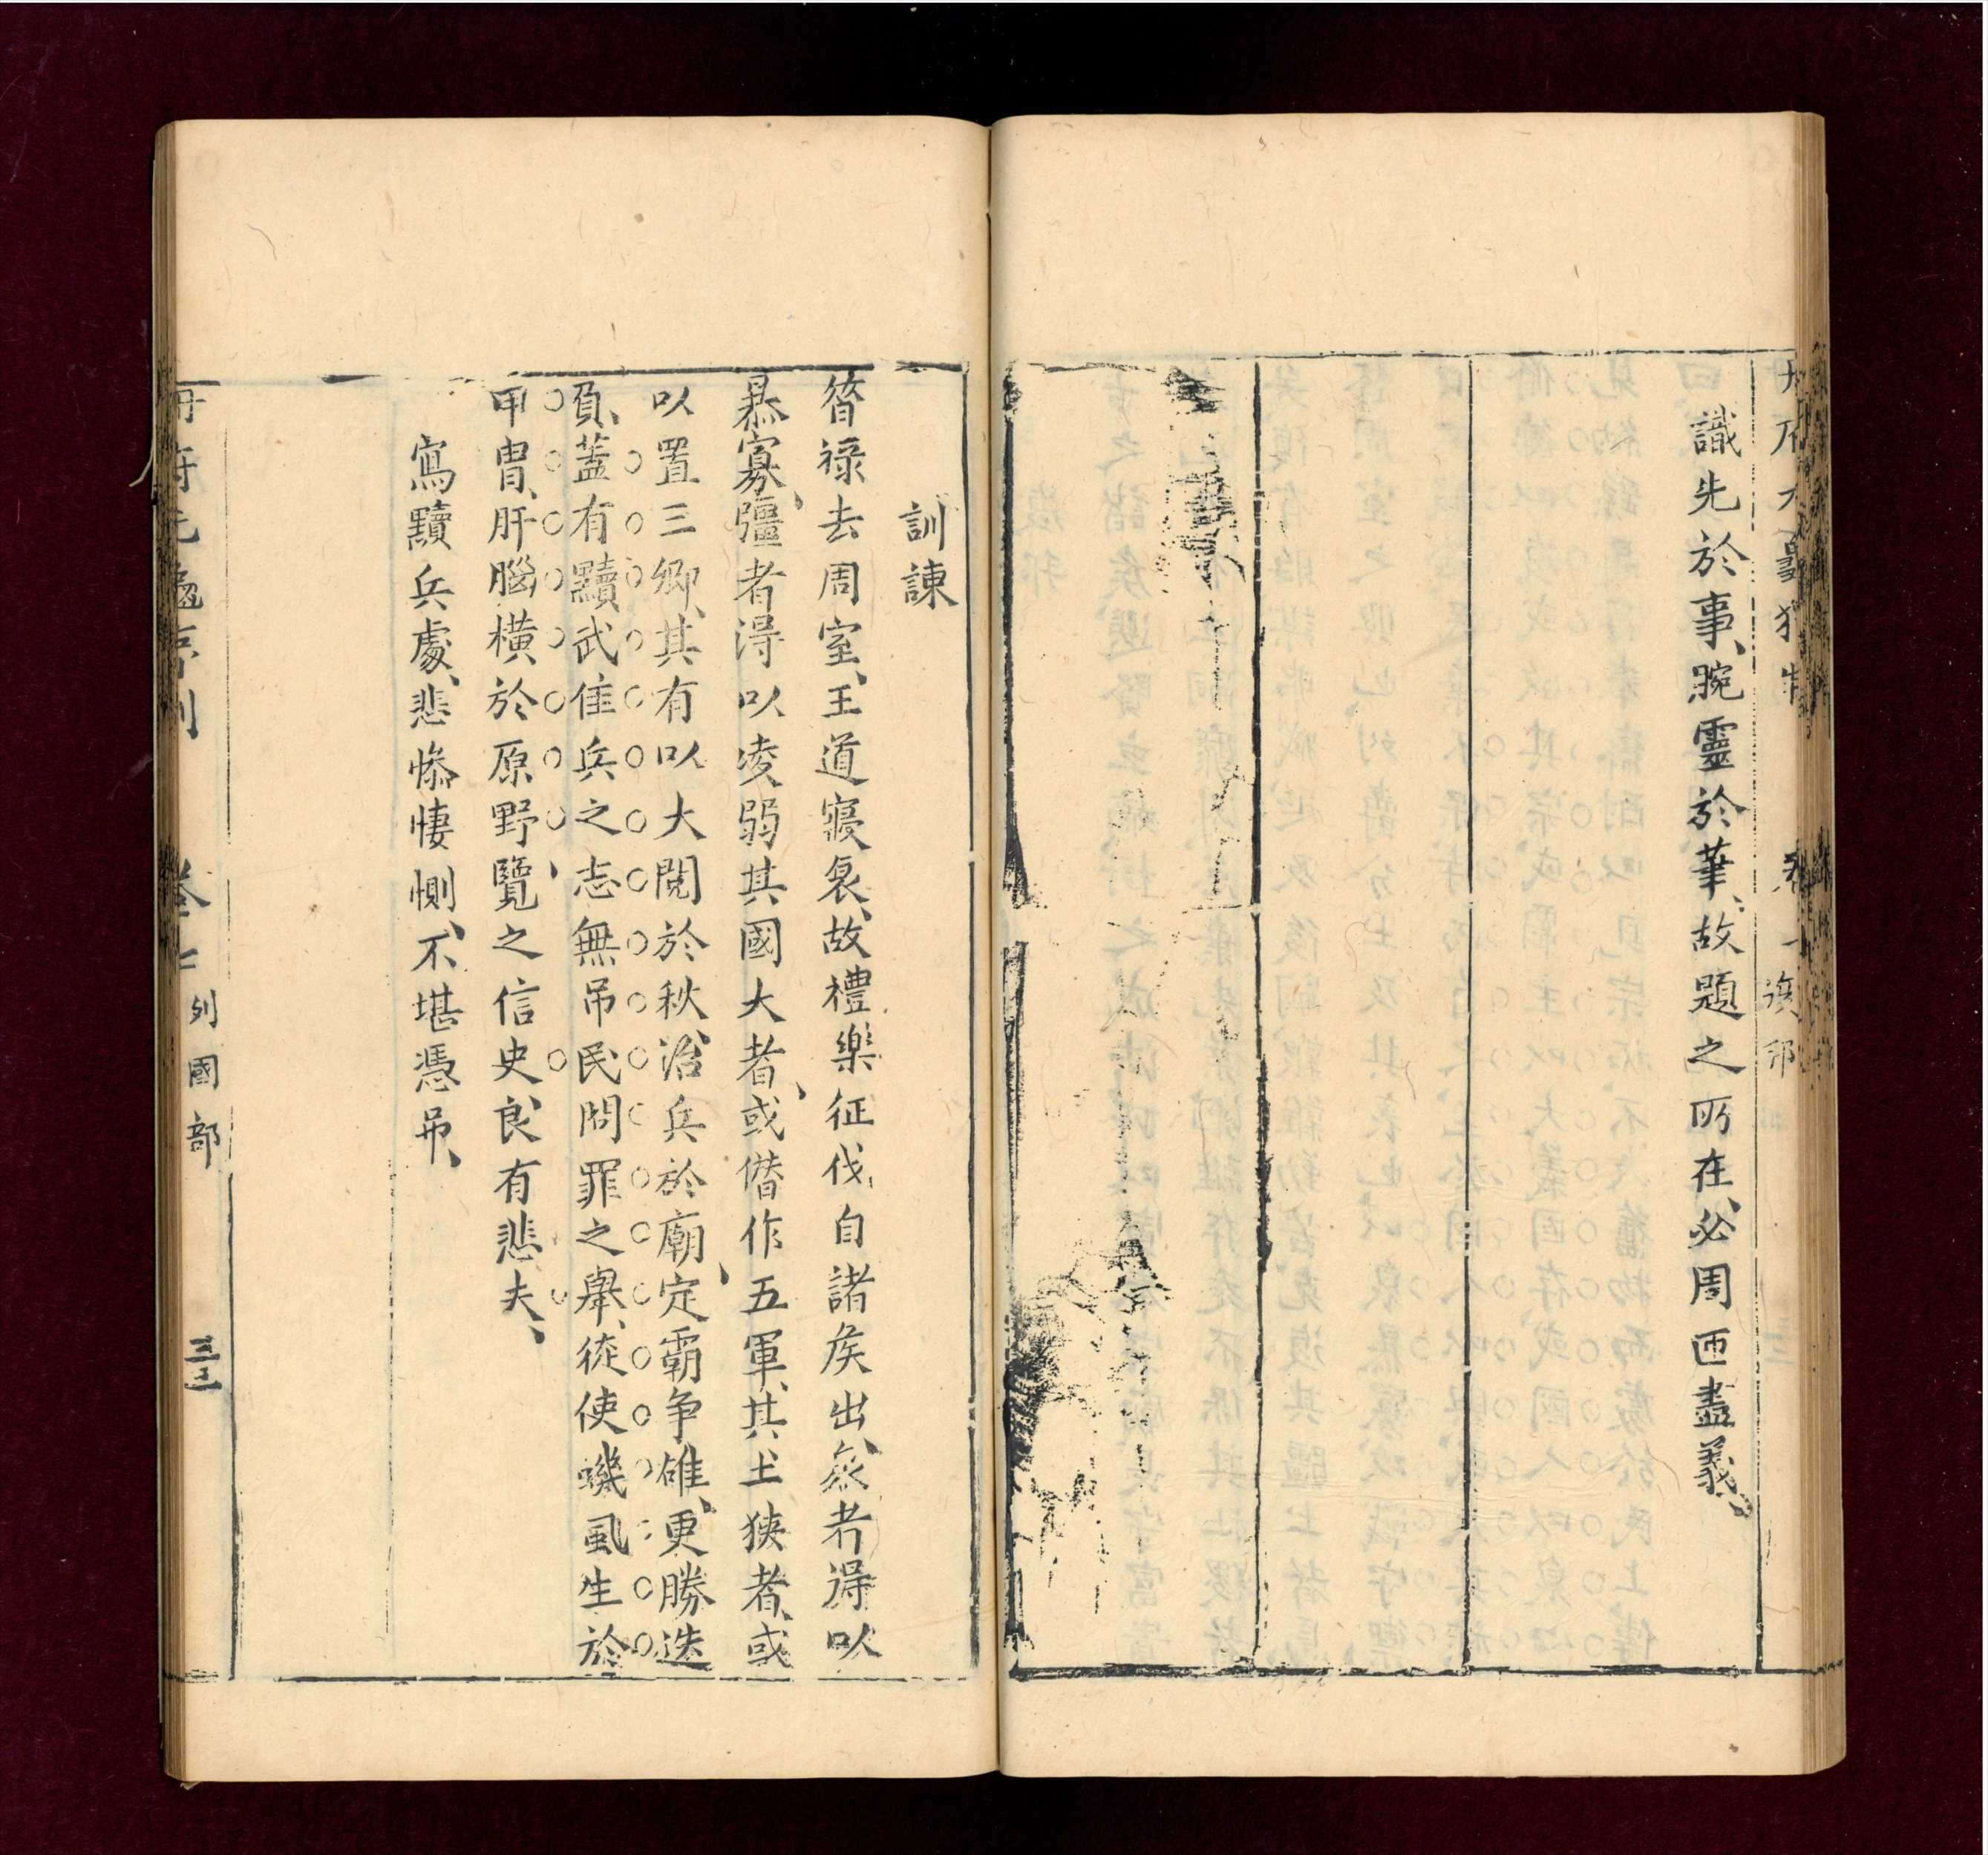 識先於事、腕靈於華、故題之所在、必周匝盡義、
訓諫
昝祿去周室、王道寢衰、故禮樂征伐自諸矦出、衆者得以
暴寡、彊者得以凌弱其國大者、或僭作五軍、其土狹者、或
以置三卿、其有以大閱於秋、治兵於廟、定霸争雄、更勝迭
負、蓋有黷武隹兵之志無吊民問罪之舉、徒使蟣虱生於
甲冑、肝腦橫於原野、覽之信史、良有悲夫、
寫黷兵處、悲慘悽惻、不堪憑吊、
列國部